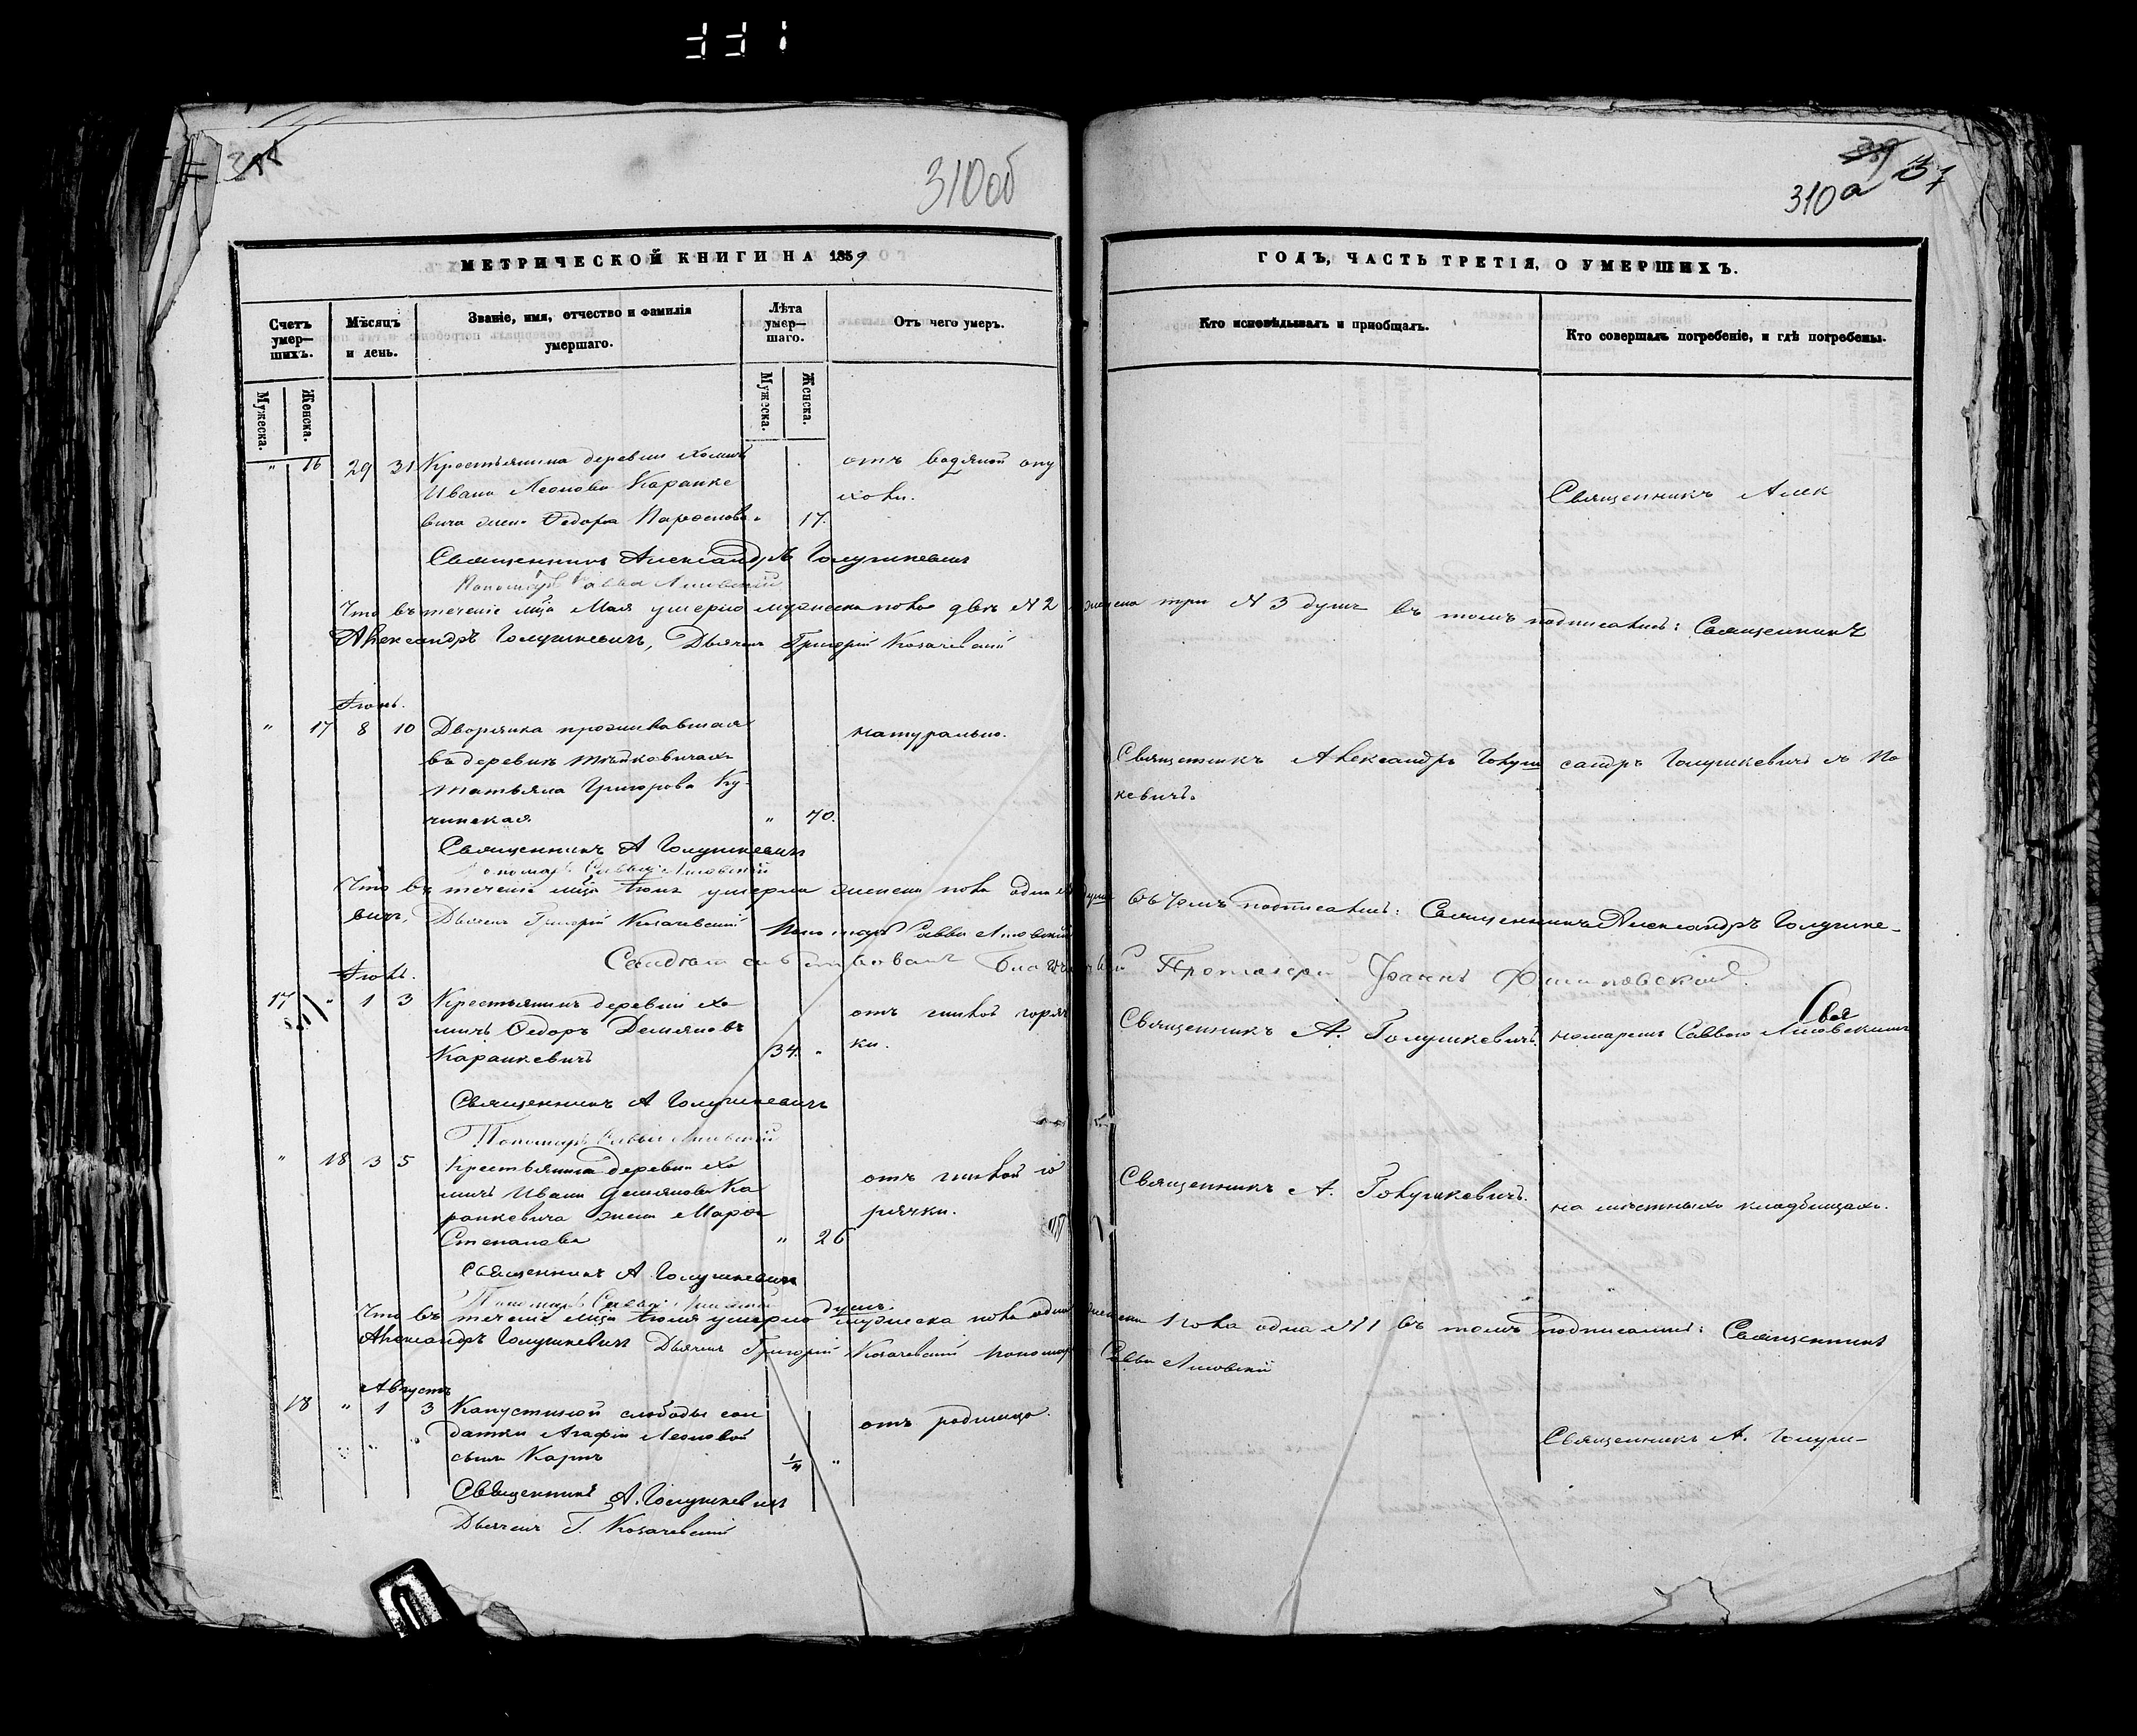 331
310об
310а 37
МЕТРИЧЕСКОЙ КНИГИ НА 1859
ГОДЪ, ЧАСТЬ ТРЕТІЯ, О УМЕРШИХЪ.
Счетъ умер—шихъ.
Мѣсяцъ и день.
Званіе, имя, отчество и фамилія умершаго.
Лѣта умер—шаго.
Отъ чего умеръ.
Кто исповѣдывалъ и приобщалъ.
Кто совершалъ погребеніе, и гдѣ погребены.
Мужеска.
Женска.
Мужеска.
Женска.
" 16 29 31 Крестьянина деревни Хомичъ
Ивана Леонова Каранке
вича жена Федора 17.
отъ водяной опу
холи.
Священникъ Алек
Священникъ Александръ Голушкевичъ
Пономарь Савва Лисовскій
Что въ теченіе мца Мая умерло мужеска пола двѣ № 2 женска три № 3 душъ въ томъ подписались: Священникъ
Александръ Голушкевичъ, Дьячекъ Григорій Козачевскій
Іюнь.
" 17 8 10 Дворянка проживавшая
въ деревнѣ
Татьяна Григорова Ку
чинская " 70.
натурально.
Священникъ Александръ Голуш
кевичъ.
сандръ Голушкевичъ съ По
Священникъ А Голушкевичъ
Пономарь Савва Лисовскій
Что въ теченіе мца Іюня умерла женска пола одна душа въ чемъ подписались: Священникъ Александръ Голушке-
вичъ, Дьячекъ Григорій Козачевскій Пономарь Савва Лисовскій
Протоіерей Іоаннъ
Іюль.
17 " 1 3 Крестьянинъ деревни Хо
мичъ Федоръ Демяновъ
Каранкевичъ 34. "
отъ гнилой горяч
ки.
Священникъ А. Голушкевичъ.
номаремъ Саввою Лисовскимъ
Священникъ А Голушкевичъ
Пономарь Савва Лисовскій
" 18 3 5 Крестьянина деревни Хо
мичъ Ивана Демянова Ка
ранкевича жена Марфа
Степанова " 26
отъ гнилой го
рячки.
Священникъ А. Голушкевичъ.
на мѣстныхъ кладбищахъ.
Священникъ А Голушкевичъ
Пономарь Савва Лисовскій
душъ
Что въ теченіе мца Іюля умерло мужеска пола одна женска пола одна №1 въ томъ подписались: Священникъ
Александръ Голушкевичъ Дьячекъ Григорій Козачевскій Пономарь Савва Лисовскій
Августъ
18 " 1 3 Капустиной слободы сол
датки Агафіи Леоновой
сынъ Карпъ
отъ родимца.
Священникъ А. Голуш-
Священникъ А. Голушкевичъ
Дьячекъ Г. Козачевскій